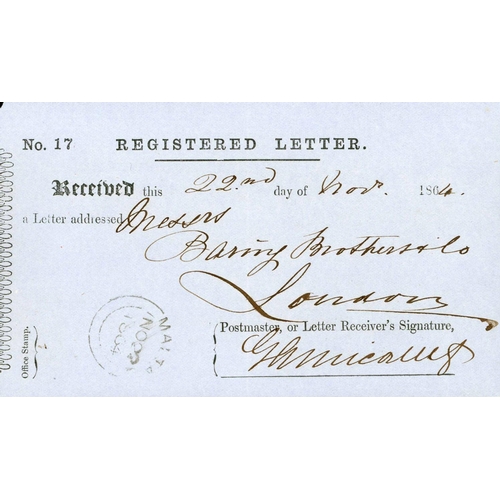 No. 17 REGISTERED LETTER.
Received this 22nd day of Novr. 1864.
a Letter addressed Messrs
Baring Brothers & Co
London
Postmaster, or Letter Receiver's Signature,
Office Stamp.
MALTA
NO 22
1864